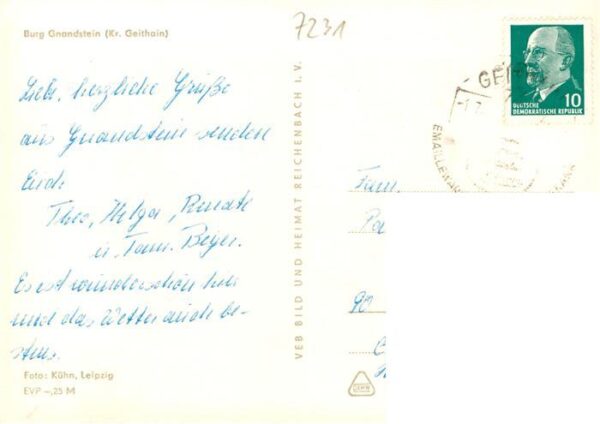 Burg Gnandstein (Kr. Geithain)
7231
Liebe, herzliche Grüße
aus Gnandstein senden
Euch
Theo, Helga, Renate
u. Fam. Beyer.
Es ist wunderschön hier
und das Wetter auch be-
stens.
Foto: Kühn, Leipzig
EVP -,25 M
VEB BILD UND HEIMAT REICHENBACH I. V.
GEI
DEUTSCHE
DEMOKRATISCHE REPUBLIK
10
EMAILLEWA
Fam.